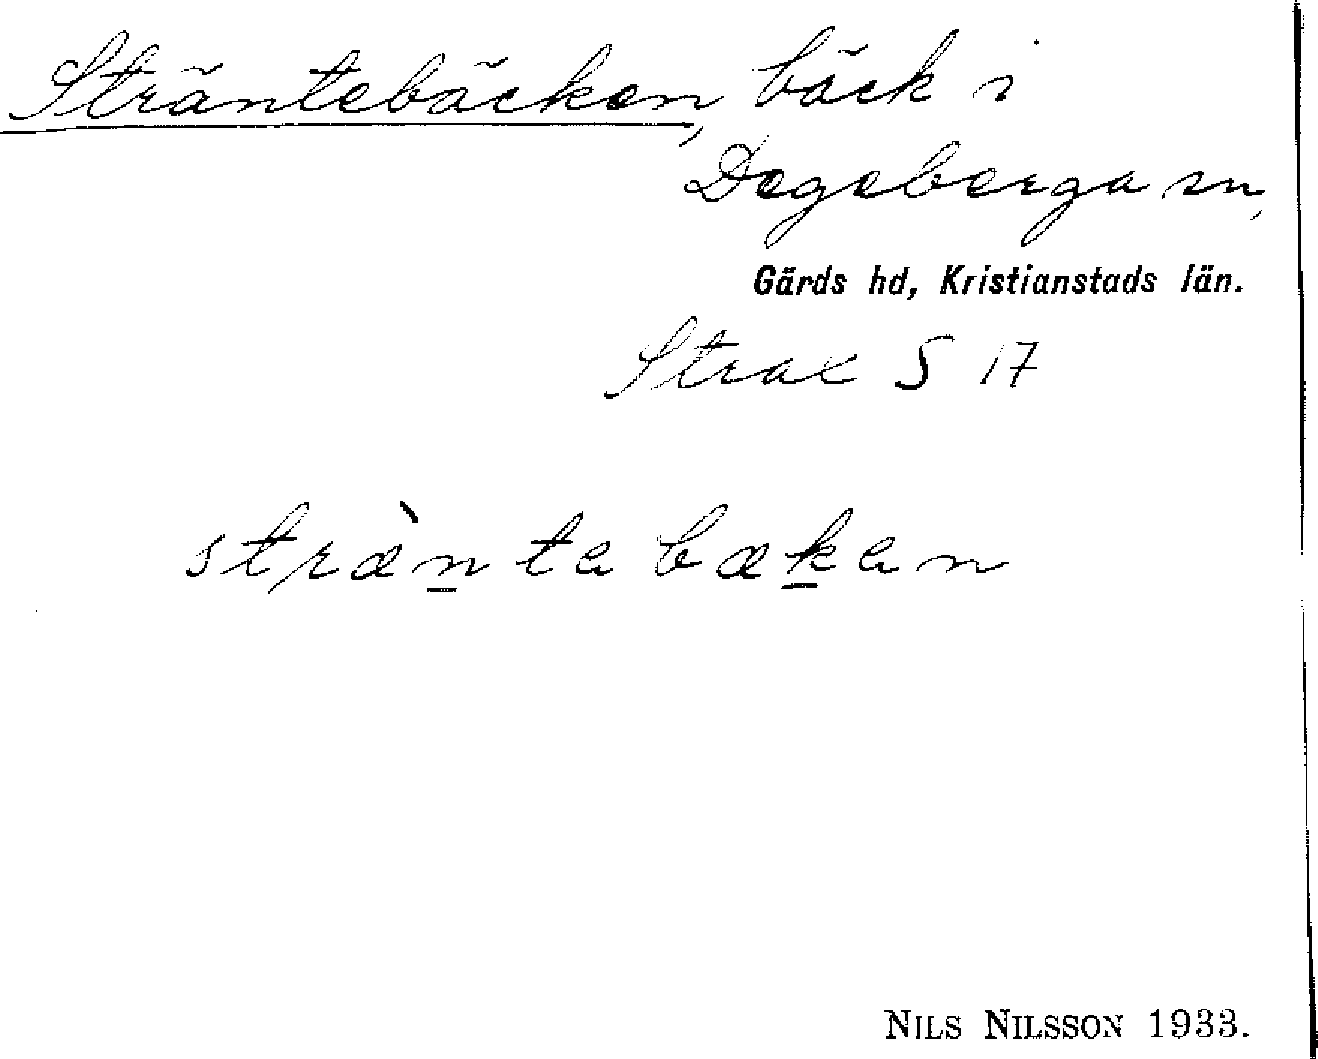 Sträntebäcken, bäck i
Degeberga sn,
Gärds hd, Kristianstads län.
Strax S 17
stræ̀n̲tebæk̲en
NILS NILSSON 1933.